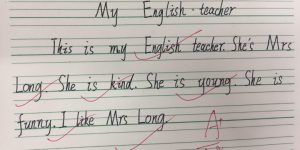 My English teacher
This is my English teacher. She's Mrs
Long. She is kind. She is young. She is
funny. I like Mrs Long.
A